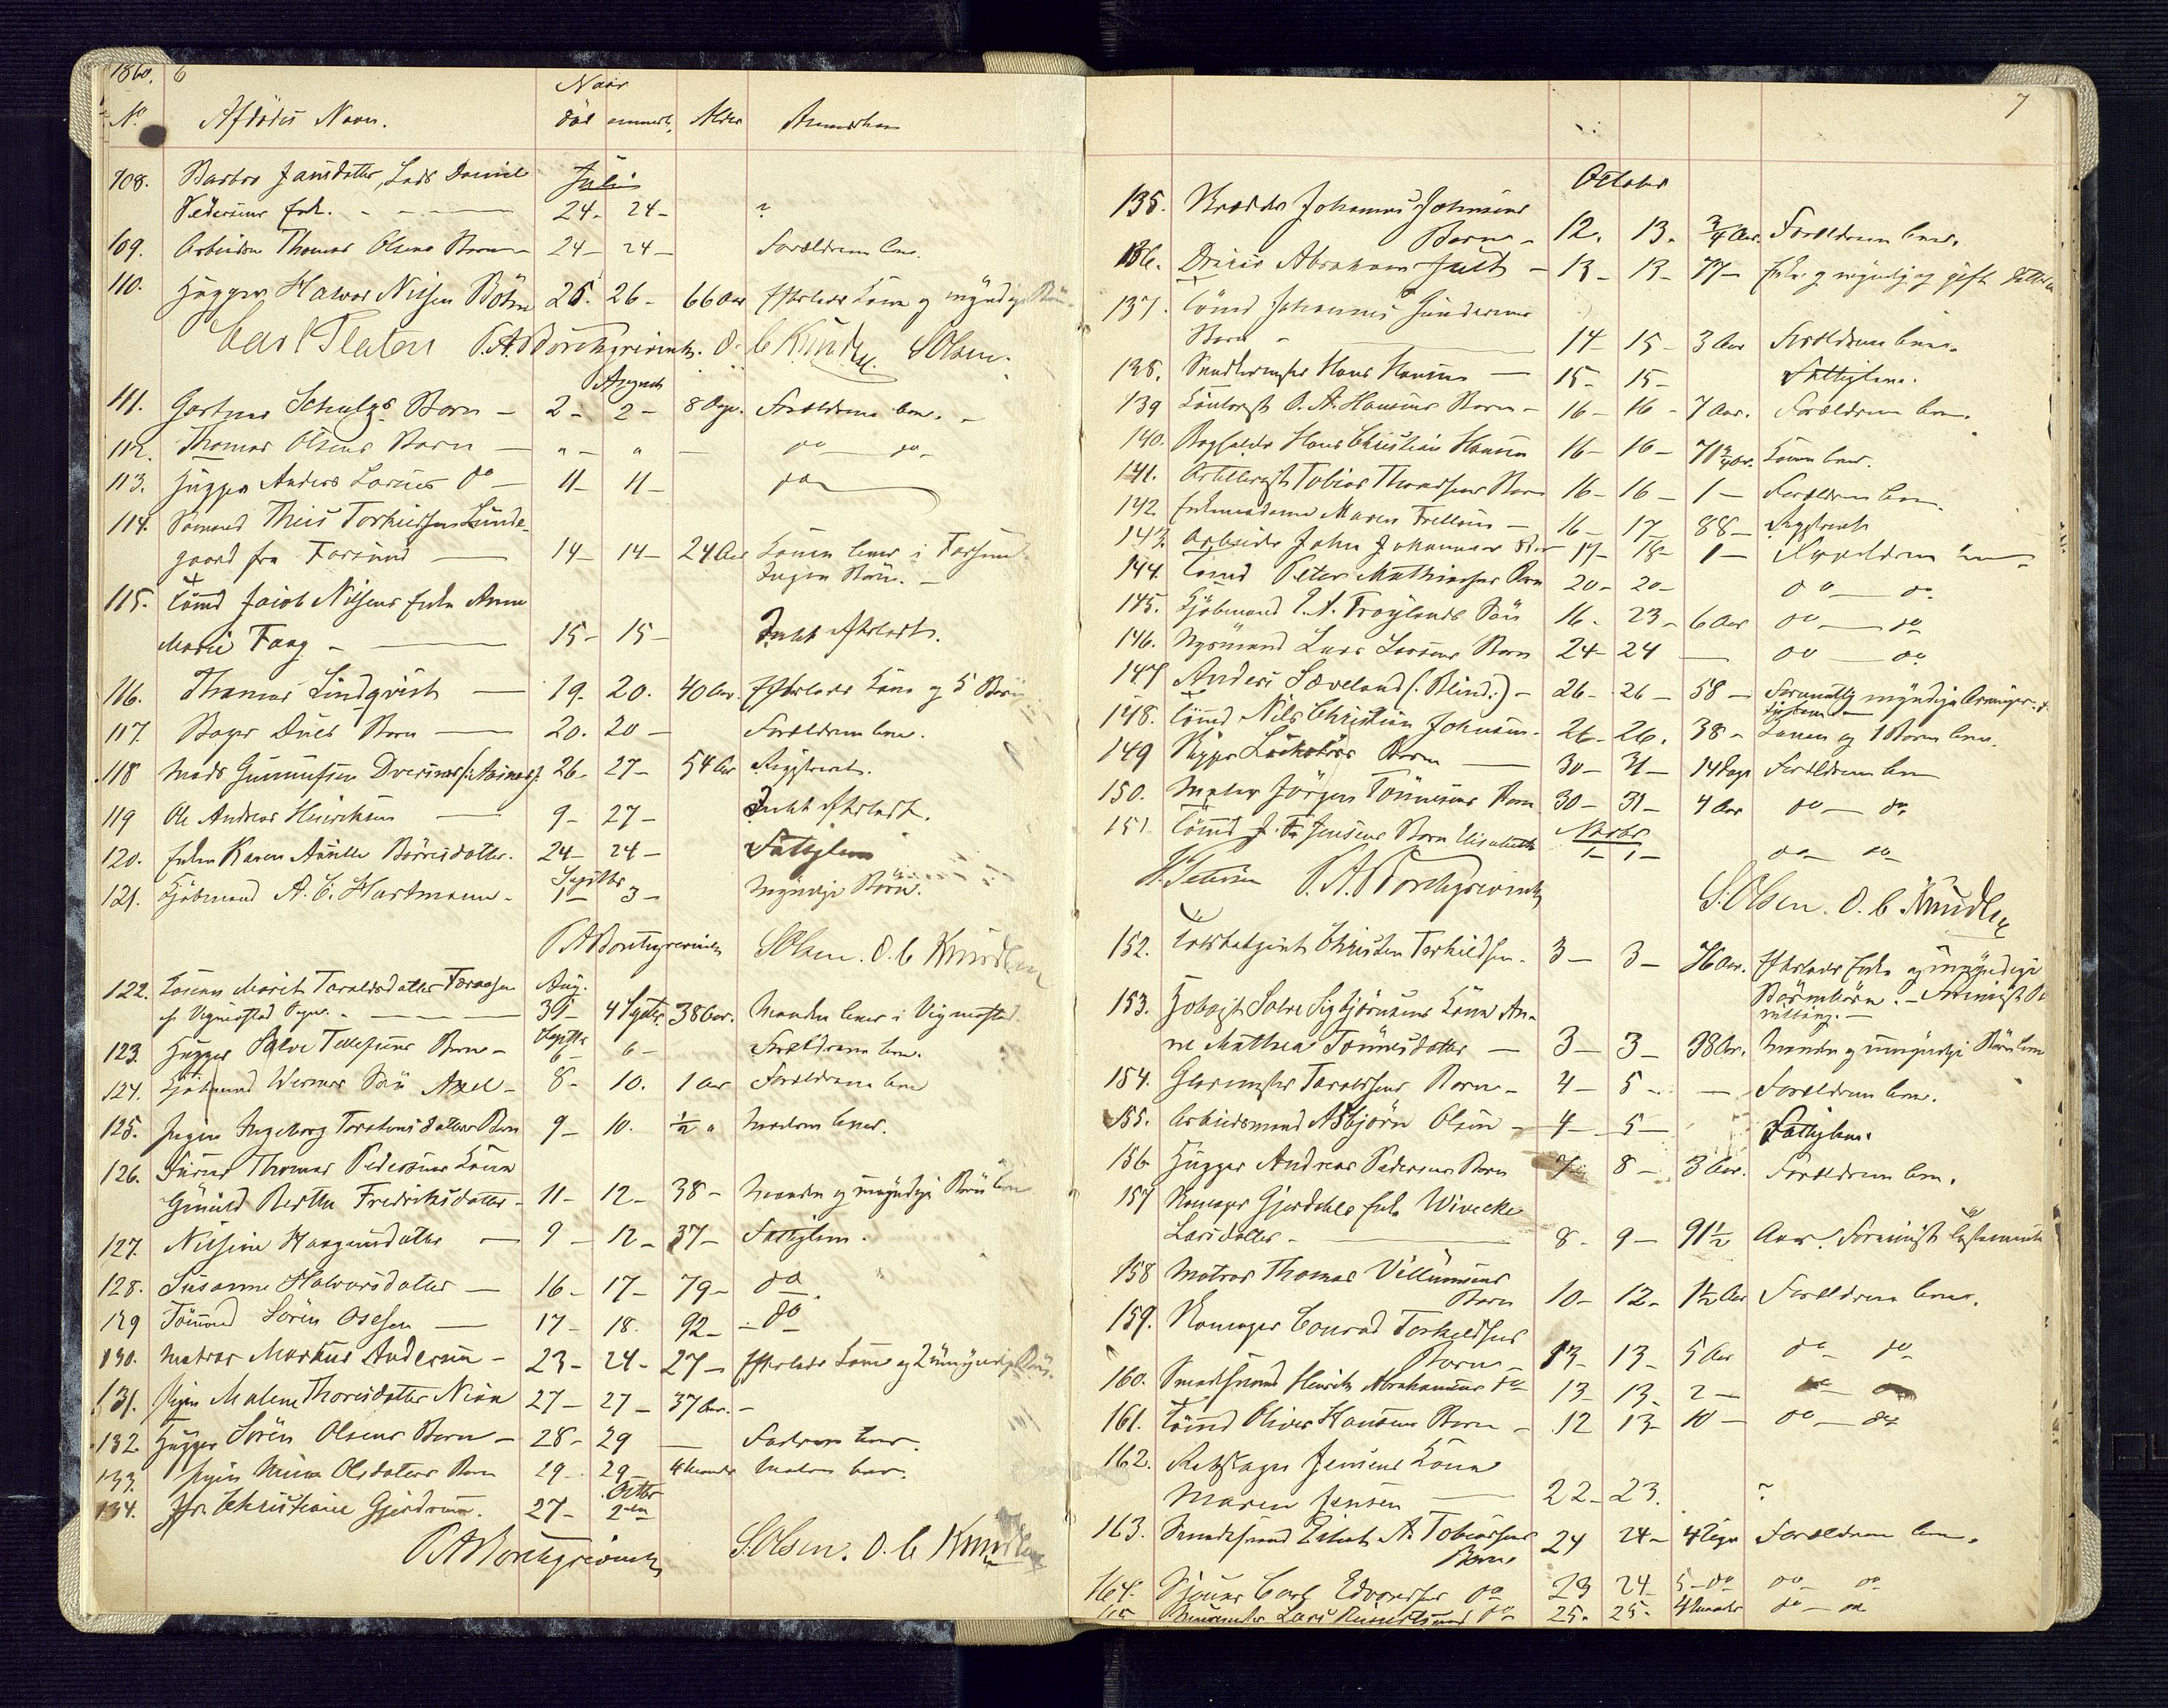 1860. 6
Naar
No Afdødes Navn. død anmeldt, Alder Anmærkn
108. Barbro Jansdatter, Lods Daniel Juli
Pedersens Enke. - - - 24- 24- ?
109. Arbeider Thomas Olsens Barn - 24- 24- Forældrene leve.
110. Hugger Hawor Nilsen Böhn 25. 26- 66 Aar Efterlader Kone og myndige Børn.
Carl Platou P.A. Borchgrevink. O. C. Knudsen. S Olsen.
August
111. Gartner Schulzs Barn - 2- 2- 8 Dage. Forældrene leve. -
112. Thomas Olsens Barn - " - " - do do
113. Hugger Anders Larsens do - 11- 11- do
114. Sømand Theis Torkildsen Lunde-
gaard fra Farsund - 14- 14- 24 Aar Konen lever i Farsund.
Ingen Børn. -
115. Tømd Jacob Nilsens Enke Anne
Marie Faag - 15- 15- Intet efterladt.
116. Thomas Lindqvist - 19- 20. 40 Aar. Efterlader Kone og 5 Børn
117. Bager Dues Barn - 20. 20- Forældrene leve.
118 Mads Gunnufsen Dversnes 26- 27- 54 Aar Registreret.
119 Ole Andreas Henriksen - 9- 27- Intet efterladt.
120. Enken Karen Aurilla Børresdatter. 24- 24- Fattiglem
Septbr
121. Kjøbmand A. C. Hartmann - 1- 3- Myndige Børn.
P A Borchgrevink S Olsen. O. C Knudsen
122. Konen Marit Taraldsdatter Aug.
af Vigmostad Sogn. - 30- 4 Septbr. 38 Aar. Manden lever i Vigmostad.
Septbr
123. Hugger Salve Tellefsens Barn - 6- 6- Forældrene leve.
124. Kjøbmand Werner Søn Axel - 8- 10. 1 Aar Forældrene leve
125. Pigen Ingeborg Torstensdatters Barn 9- 10. 1/2 " Moderen lever.
126. Thomas Pedersens Kone
Gunild Bertha Fredriksdatter - 11- 12- 38- Manden og umyndige Børn leve
127. Nilsine Haagensdatter - 9- 12- 37- Fattiglem.
128. Susanne Halvorsdatter - 16- 17- 79- do
129 Tømmd Søren Osesen - 17- 18. 92- do
130. Matros Markus Andersen - 23- 24- 27- Efterlader Kone og 2 umyndige Børn.
131. Pigen Malene Thoresdatter 27- 27- 37 Aar. -
132. Hugger Søren Olsens Barn - 28- 29 - Faderen lever.
133. Pigen Olsdatters Barn 29- 29- Moderen lever.
Octbr
134. Jfr. Christiane Gjerdrum. 27- 2den
P A Borchgrevink S. Olsen. O. C Knudsen
7
October
135. Skrædder Johannes Johnsens
Barn - 12. 13. 3/4 Aar. Forældrene leve.
136. Abraham - 13- 13- 77-
137. Tømd Johannes Gundersens
Barn - 14- 15- 3 Aar Forældrene leve.
138. Snedkermester Hans Hansen - 15- 15- Fattiglem.
139 O. A. Hansens Barn - 16- 16- 7 Aar. Forældrene leve.
140. Bogholder Hans Christian Hansen 16- 16- 71 3/4 Ar. Konen lever.
141. Artillerist Tobias Thomsens Barn 16- 16- 1- Forældrene leve
142 Enkemadame Maren Trellsen - 16- 17- 88- Registreret
143. Arbeider John Johannesens Barn 17- 18- 1- Forældrene leve
144. Tømd Peter Mathiassens Barn 20- 20- do do
145. Kjøbmand T. A. Frøylands Søn 16- 23- 6 Aar do do
146. Nysmand Lars Larsens Barn 24- 24 - do do
147 Anders Sæveland (: Blind:) - 26- 26- 58- myndige
148. Tømd Nils Christian Johnsen - 26- 26. 38- Konen og 1 Barn lever.
149 Barn - 30- 31- 14 Dage Forældrene leve
150. Maler Jörgen Tønnesens Barn 30- 31- 4 Aar do do
Novbr
151. Tømd J. Fr. Jensens Barn Elisabeth 1- 1- do do
H. Petersen P. A. Borchgrevink S. Olsen. O. C Knudsen
152. Toldbetjent Christen Torkildsen. 3- 3- 76 Aar. Efterlader Enke og umyndige
Børnebørn. -
153. Salve Sigbjørnsens Kone An-
ne Mathea Tønnesdatter - 3- 3- 38 Ar. Manden og umyndige Børn leve
154. Glarmester Taraldsens Barn - 4- 5- - Forældrene leve.
155. Arbeidsmand Asbjørn Olsen - 4- 5- Fattiglem.
156 Hugger Andreas Pedersens Barn 7- 8- 3 Aar. Forældrene leve.
157 Gjerdahls Enke Wivecke
Larsdatter - 8- 9- 91 1/2 Aar. Testamente
158 Matros Thomas Villumsens
Barn 10- 12- 1 1/2 Aar Forældrene leve.
159. Conrad Torkildsens
Barn - 13- 13- 5 Aar do do
160. Smedsvend Henrik Abrahamsens do 13- 13- 2- do do
161. Tømd Oliver Hansens Barn - 12 13- 10- do do
162. Rebslager Jensens Kone
Maren Jensen - 22- 23. ?
163. A. Tobiassens
Barn 24 24- 4 Uger Forældrene leve.
164. Carl Edvardsens do 23 24- 5- do do do
165 Lars do 25. 25- do do